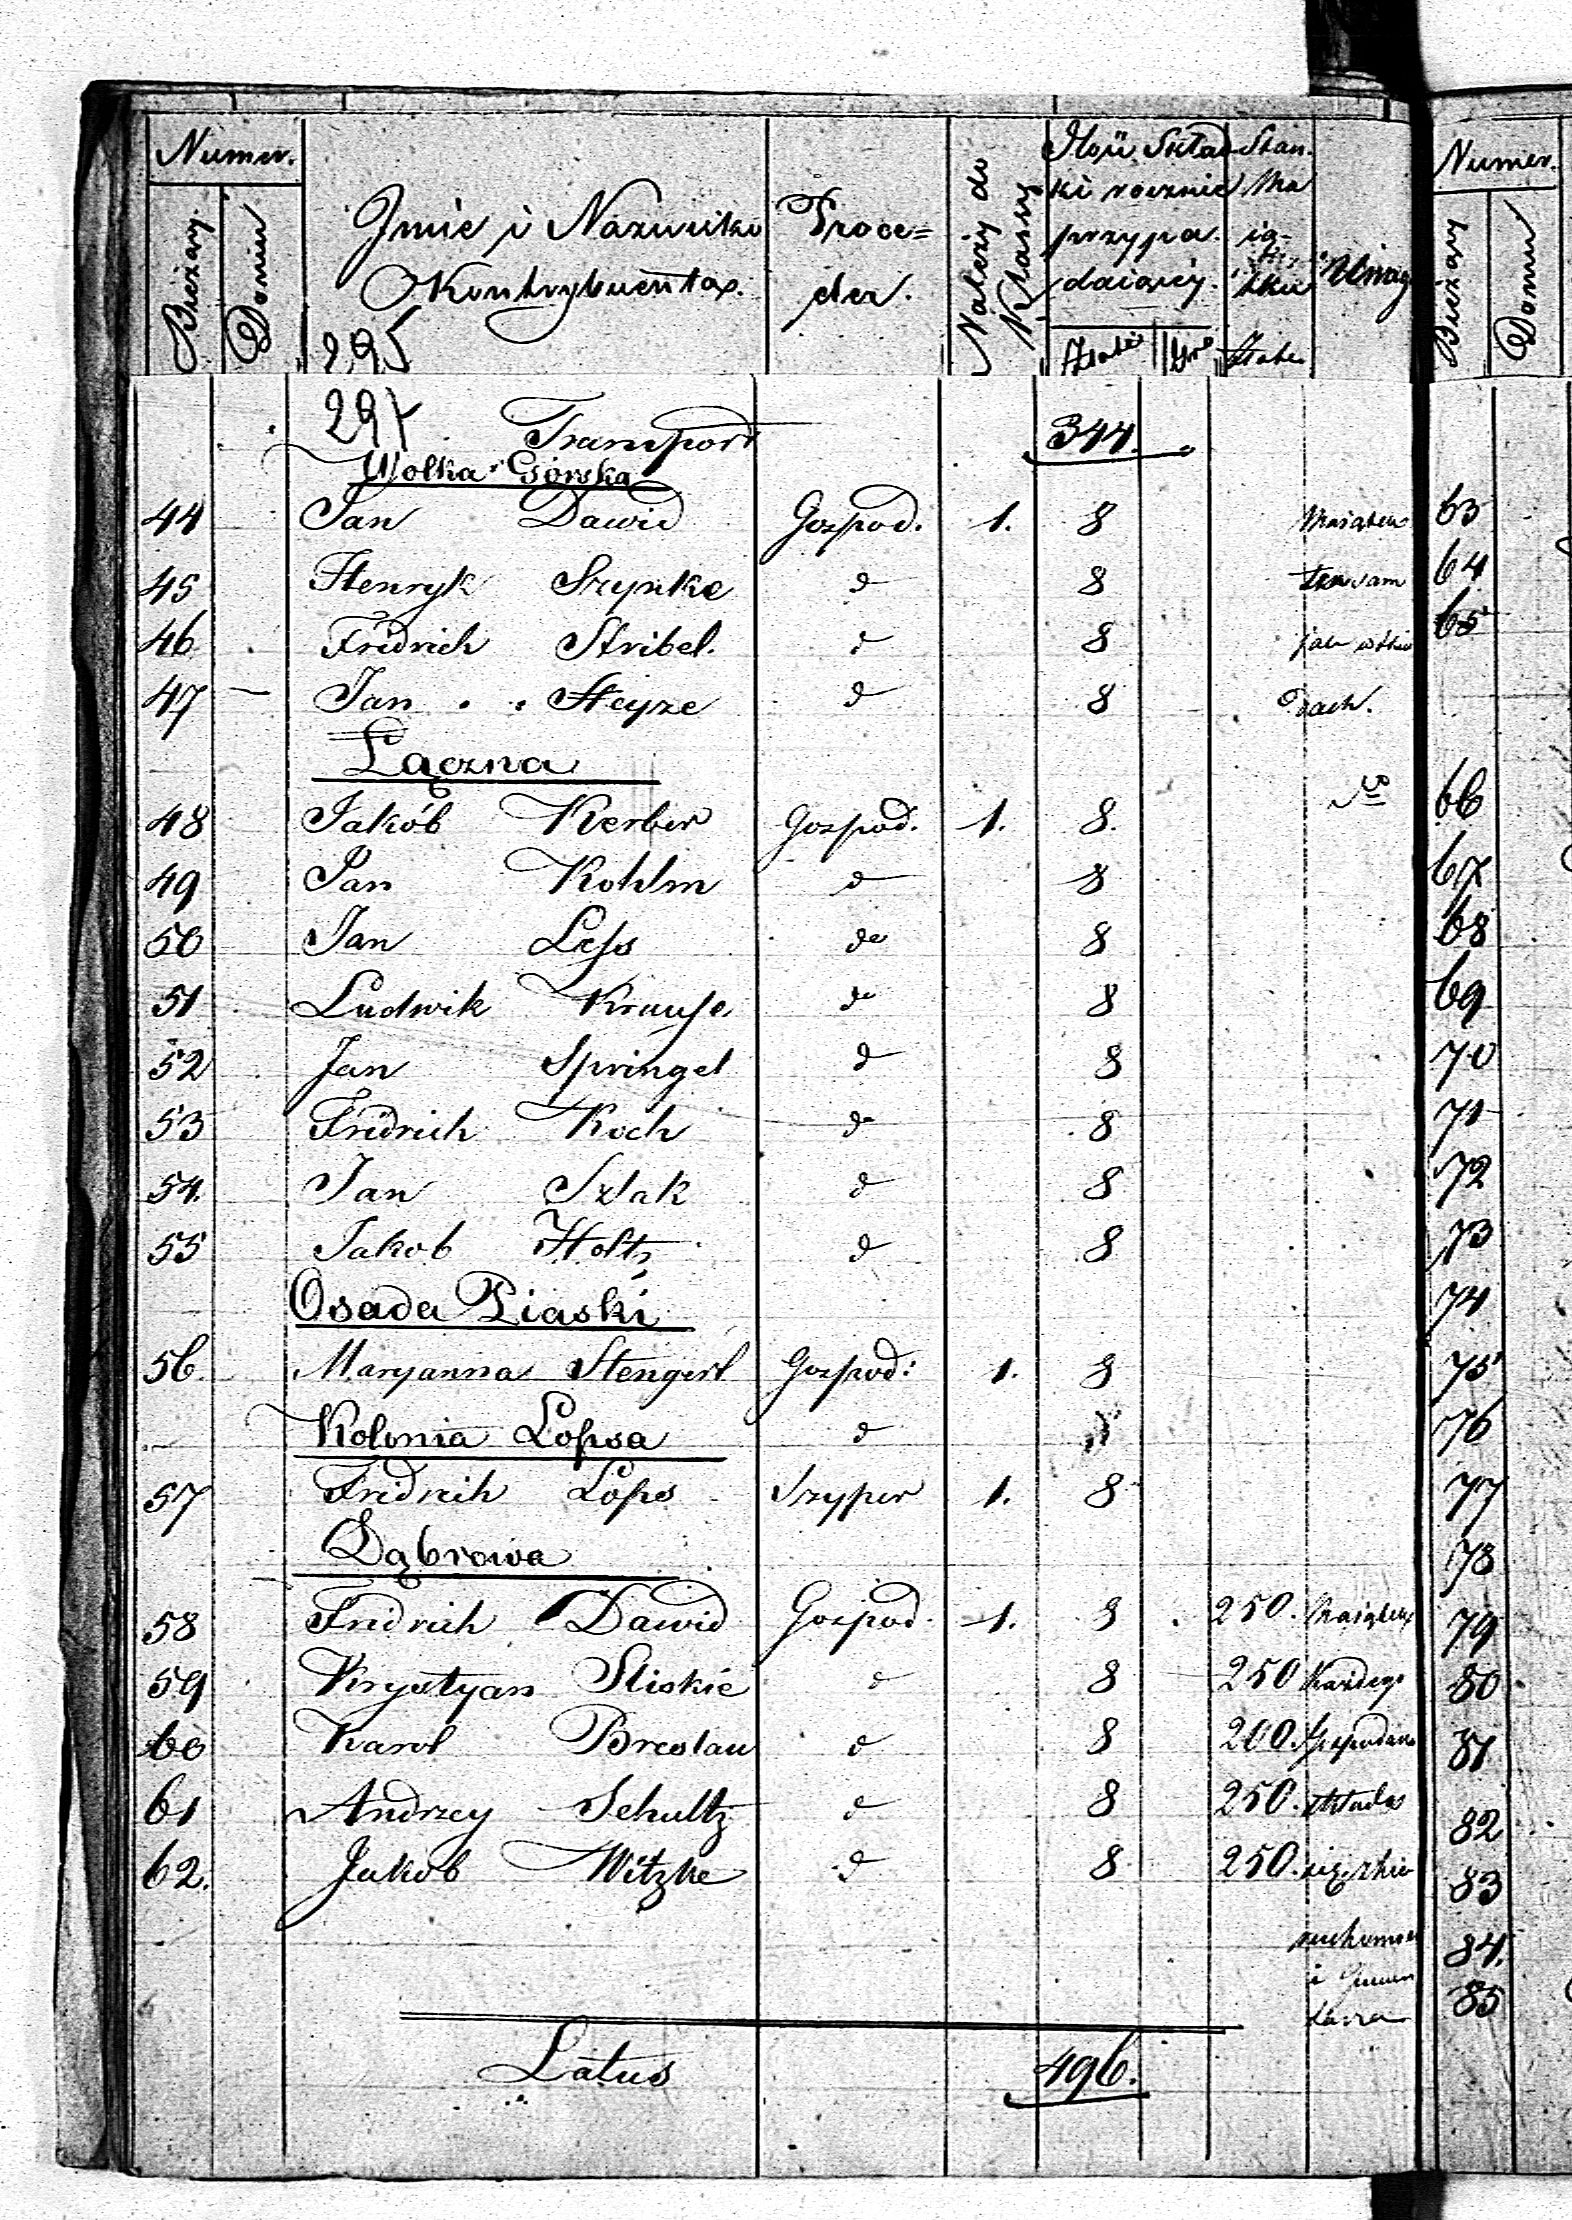 Numer.
Bieżący
Domu
Jmie i Nazwisko
Kontrybuenta.
Proce=
der.
Należy do
Klassy
Ilość Skład
ki rocznie
przypa.
daiącéy.
Złote
Gro
Stan.
Ma
ią-
tku
Złote
Uwag
Numer.
Bieżący
Domu
295
297 Transport 344.
Wolka Gorska
44 Jan Dawid Gospod. 1. 8 Maiątek 63
45 Henryk Szynke d 8 ten sam 64
46 Fridrich Stribel. d 8 jak w 65
47 — Jan Heyze d 8
Łączna
48 Jakób Kerber Gospod. 1. 8. 66
49 Jan Kohlm d 8 67
50 Jan Less do 8 68
51 Ludwik Krause do 8 69
52 Jan Springel d 8 70
53 Fridrich Koch do 8 71
54. Jan Szlak d 8 72
55 Jakob Holtz d 8 73
Osada Piaski 74
56 Maryanna Stengert Gospod: 1. 8 75
Kolonia Lopsa d 76
57 Fridrich Lops Szyper 1. 8 77
Dąbrowa 78
58 Fridrich Dawid Gospod 1. 8 250. Maiątek 79
59 Krystyan Sliskie d 8 250 Każdego 80
60 Karol Breslau d 8 200. Gospodarza 81
61 Andrzey Schultz d 8 250. składa 82
62. Jakob Witzke d 8 250. się z 83
84.
i 85
Latus 496.